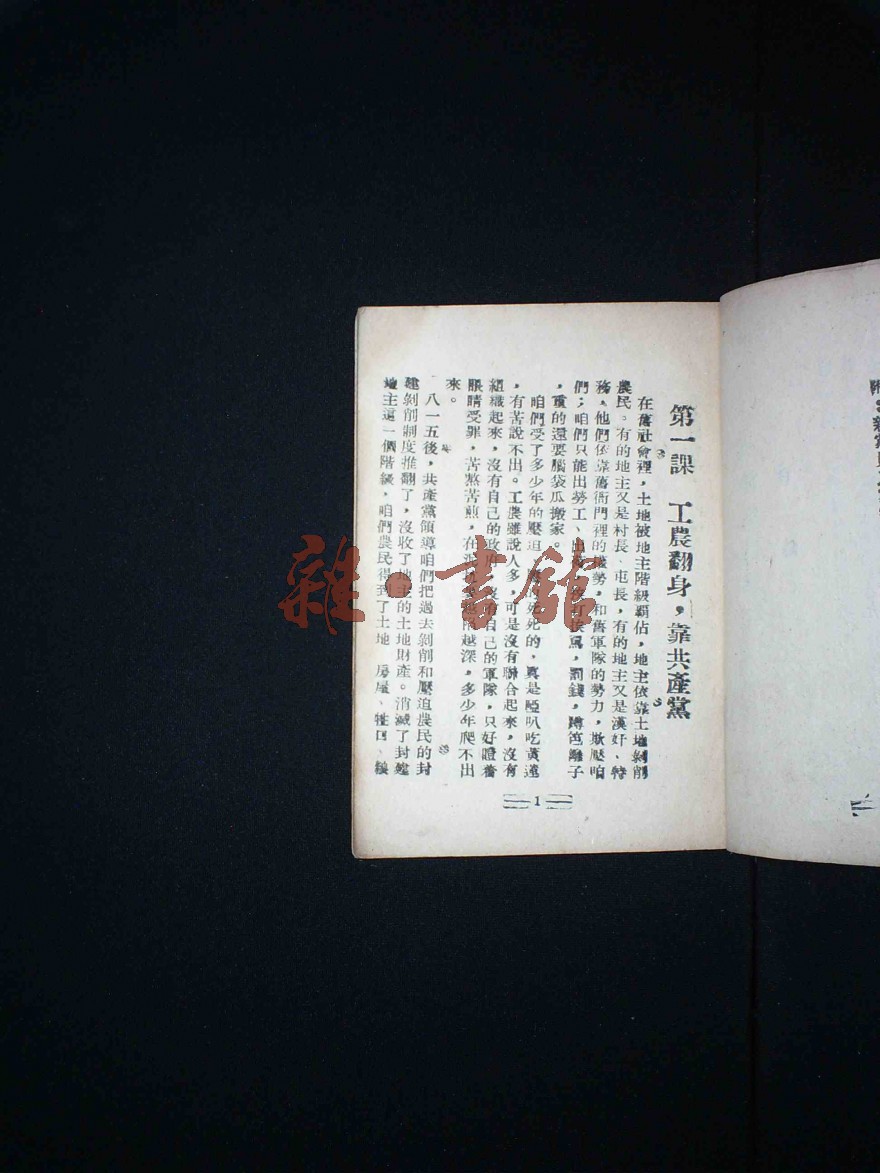 第一課　工農翻身，靠共產黨
在舊社會裡，土地被地主階級覇佔，地主依靠土地剝削
農民。有的地主又是村長、屯長，有的地主又是漢奸、特
務，他們依靠舊衙門裡的權勢，和舊軍隊的勢力，欺壓咱
們；咱們只能出勞工、出荷，挨打挨罵，罰錢，蹲笆籬子
，重的還要腦袋瓜搬家。
咱們受了多少年的壓迫，死的，真是啞叭吃黃連
，有苦說不出。工農雖說人多，可是沒有聯合起來，沒有
組織起來，沒有自己的政府，沒有自己的軍隊，只好瞪着
眼睛受罪，苦熬苦煎，在越深，多少年爬不出
來。
八一五後，共產黨領導咱們把過去剝削和壓迫農民的封
建剝削制度推翻了，沒收了地主的土地財產。消滅了封建
地主這一個階級，咱們農民得到了土地　房屋、牲口、糧
1
雜·書館